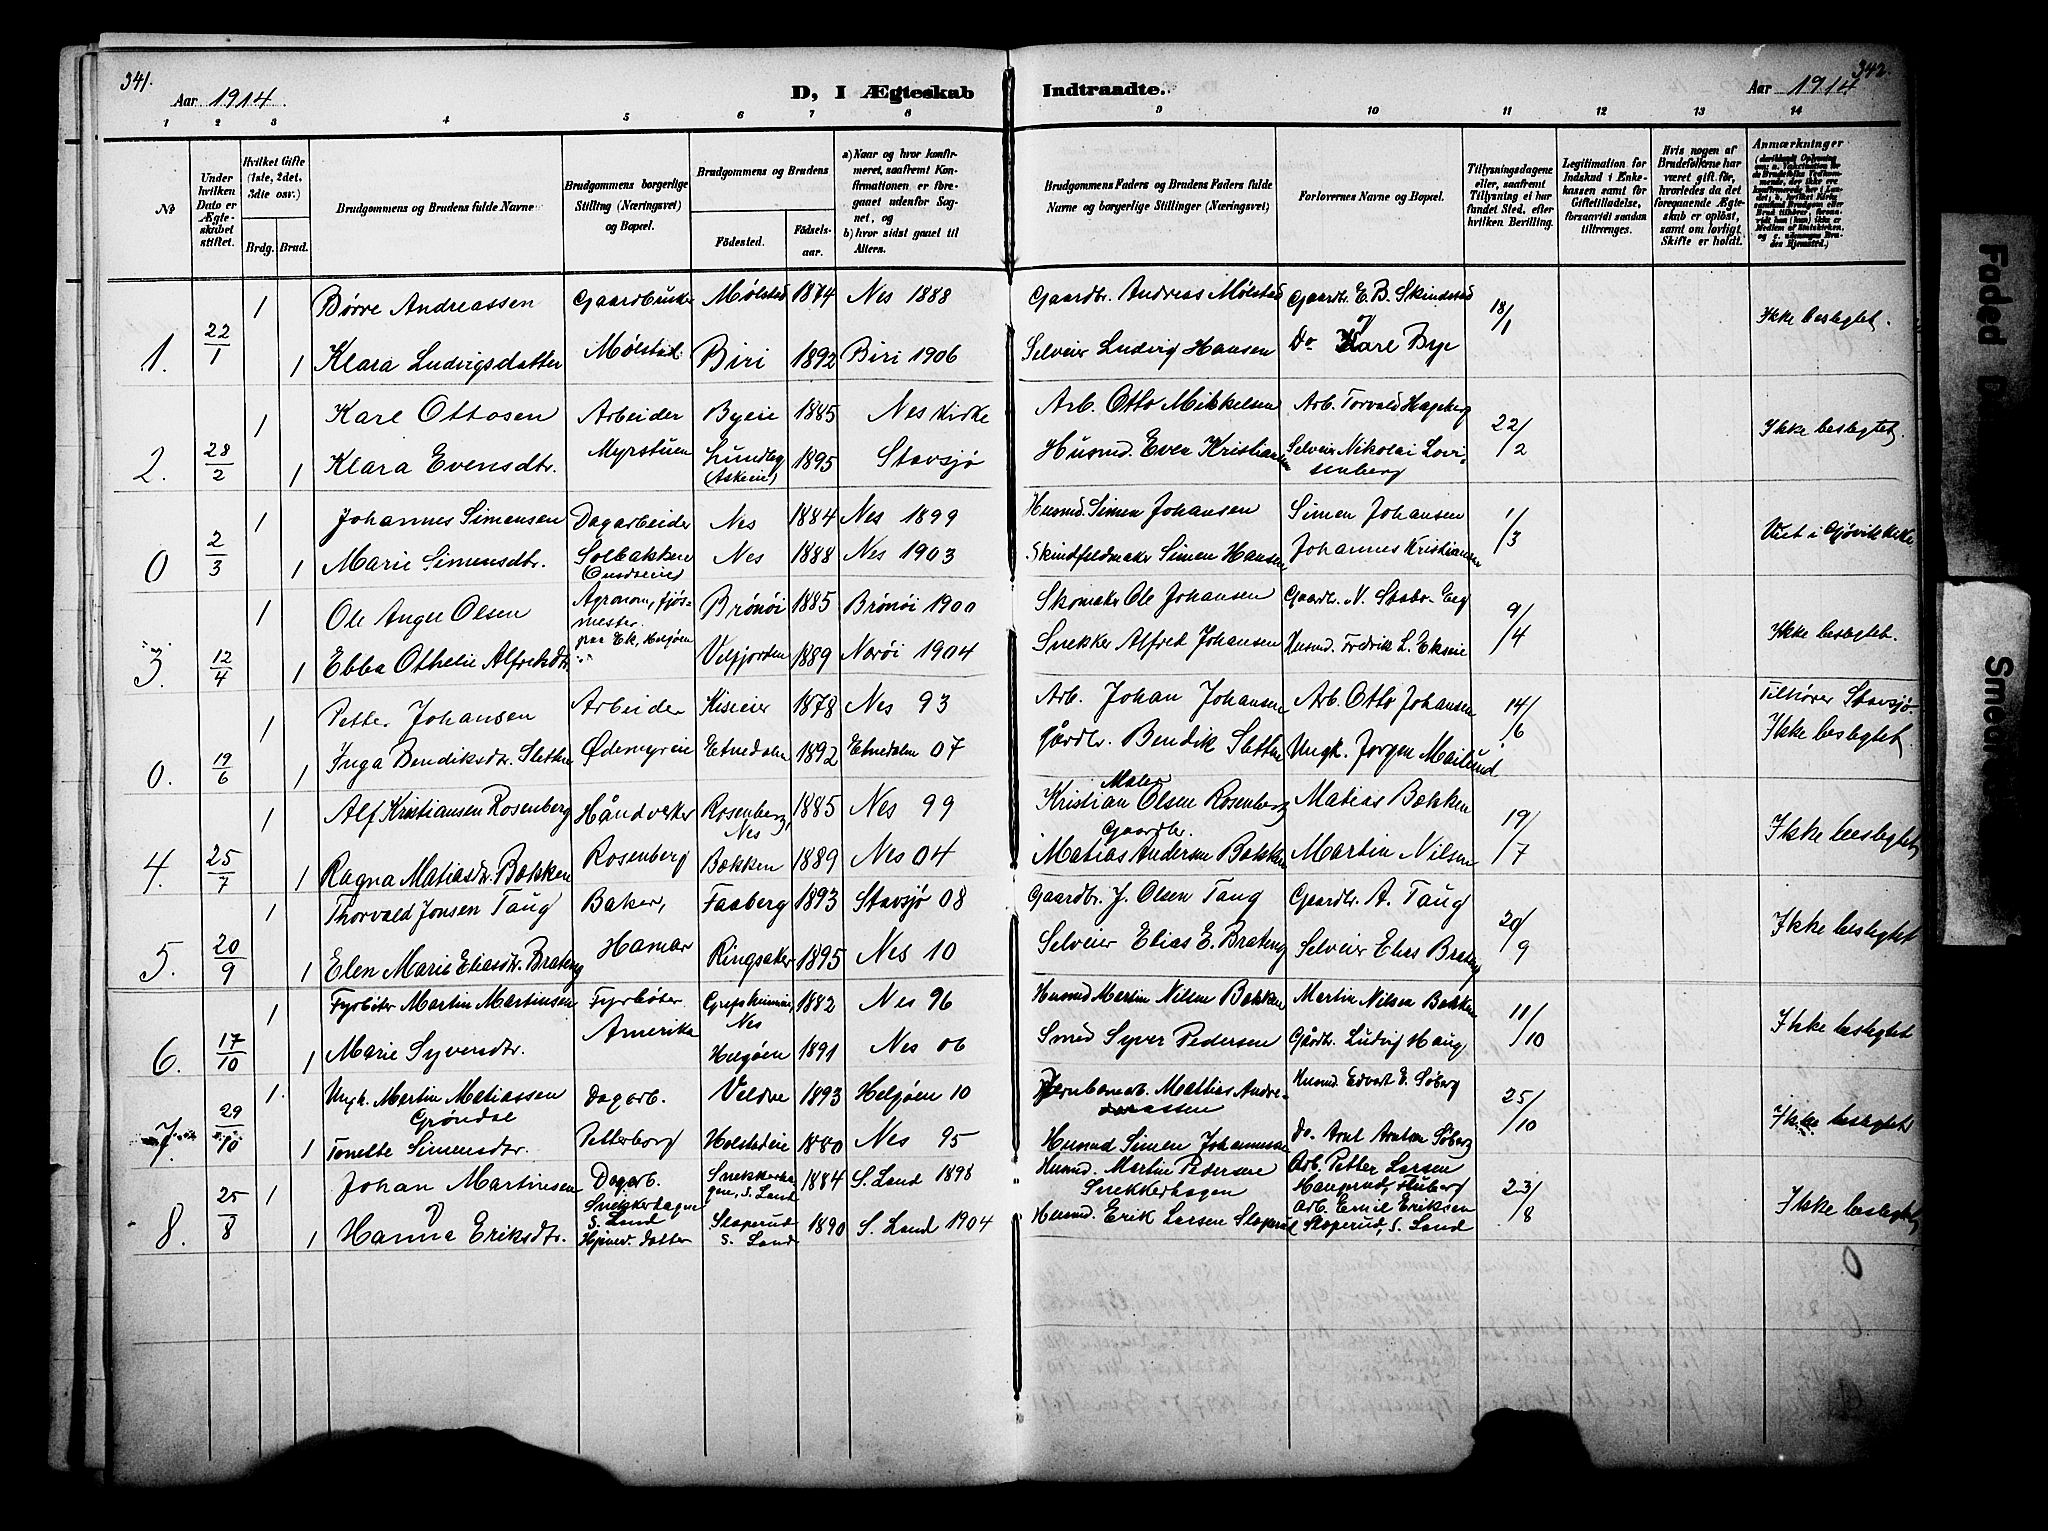 341.
342.
Aar 1914.
D, I Ægteskab Indtraadte.
Aar 1914
1 2 3 4 5 6 7 8 9 10 11 12 13 14
№
Under hvilken Dato er Ægteskabet stiftet.
Hvilket Gifte (1ste, 2det, 3die osv.)
Brdg. Brud.
Brudgommens og Brudens fulde Navne
Brudgommens borgerlige Stilling (Næringsvei) og Bopæl.
Brudgommens og Brudens
Fødested. Fødselsaar.
a) Naar og hvor konfirmeret, saafremt Konfirmationen er foregaaet udenfor Sognet, og b) hvor sidst gaaet til Alters.
Brudgommens Faders og Brudens Faders fulde Navne og borgerlige Stillinger (Næringsvei)
Forlovernes Navne og Bopæl.
Tillysningsdagene eller, saafremt Tillysning ei har fundet Sted, efter hvilken Bevilling.
Legitimation for Indskud i Enkekassen samt for Giftetilladelse, forsaavidt saadan tiltrænges.
Hvis nogen af Brudefolkene har været gift før, hvorledes da det foregaaende Ægteskab er opløst, samt om lovligt Skifte er holdt.
Anmærkninger
1 Børre Andreassen Gaardbruker Mølstad 1874 Nes 1888 Gaardbr. Andreas Mølstad Gaardbr. E. B. Skindstad 18/1 Ikke beslegtet.
1. 22/1 1 Klara Ludvigsdatter Mølstad Biri 1892 Biri 1906 Selveier Ludvig Hansen Do Karl Bye
1 Karl Ottosen Arbeider Byeie 1885 Nes Kirke Arb. Otto Mikkelsen Arb. Torvald Hageberg 22/2 Ikke beslegtet.
2. 28/2 1 Klara Evensdtr. Myrstuen Lundby (Askeeie) 1895 Stavsjø Husmd. Even Kristiansen Selveier Nikolai Lovisenberg
1 Johannes Simensen Dagarbeider Nes 1884 Nes 1899 Husmd. Simen Johansen Simen Johansen 1/3 Viet i Gjøvik kirke
0 2/3 1 Marie Simensdtr. Solbakken Nes 1888 Nes 1903 Skindfeldmaker Simen Hansen Johannes Kristiansen
1 Ole Anger Olsen Agronom, fjøsmester Brønøi 1885 Brønøi 1900 Skomaker Ole Johansen Gaardbr. N. Stabo-Eeg 9/4 Ikke beslegtet.
3. 12/4 1 Ebba Othelie Alfredsdtr. paa Ek, Helgøen Velfjorden 1889 Nærøi 1904 Snekker Alfred Johansen Husmd. Fredrik L. Ekseie
1 Petter Johansen Arbeider Kiseeier 1878 Nes 93 Arb. Johan Johansen Arb. Otto Johansen 14/6 Tilhører Stavsjø
Ikke beslegtet.
0. 19/6 1 Inga Bendiksdtr. Sletten Ødemyreie Etnedalen 1892 Etnedalen 07 Gårdbr. Bendik Sletten Ungk. Jørgen Mailund
1 Alf Kristiansen Rosenberg Håndverker Rosenberg, Nes 1885 Nes 99 Maler Kristian Olsen Rosenberg Matias Bakken 19/7 Ikke beslegtet
4. 25/7 1 Ragna Matiasdtr. Bakken Rosenberg Bakken 1889 Nes 04 Gaardbr. Matias Andersen Bakken Martin Nilsen
1 Thorvald Jonsen Taug Baker, Faaberg 1893 Stavsjø 08 Gaardbr. J. Olsen Taug Gaardbr. A. Taug 20/9 Ikke beslegtet
5. 20/9 1 Elen Marie Eliasdtr. Brateng Hamar Ringsaker 1895 Nes 10 Selveier Elias E. Brateng Selveier Elias Brateng
1 Fyrbøter Martin Martinsen Fyrbøter Nes 1882 Nes 96 Husmd Martin Nilsen Bakken Martin Nilsen Bakken 11/10 Ikke beslegtet
6. 17/10 1 Marie Syversdtr. Amerika Helgøen 1891 Nes 06 Smed Syver Pedersen Gårdbr. Ludvig Haug
1. Ungk. Martin Matiassen Grøndal Dagarb. Veldre 1893 Helgøen 10 Jernbanearb. Mathias Andreassen Husmd. Edvart E. Søberg 25/10 Ikke beslegtet
7. 29/10 1 Tonette Simensdtr. Petterborg Holstadeie 1880 Nes 95 Husmd Simen Johannessen Do. Arnt Arntsen Søberg
1 Johan Martinsen Dagarb. Snekkerhagen, S. Land 1884 S. Land 1898 Husmd. Martin Pedersen Snekkerhagen Arb. Petter Larsen 23/8 Ikke beslegtet
8. 25/8 1 Hanna Eriksdtr. Snekkerhagen S. Land Hjemmev. datter Slaperud S. Land 1890 S. Land 1904 Husmd. Erik Larsen Slaperud Arb. Emil Eriksen Slaperud, S. Land
0
Faded